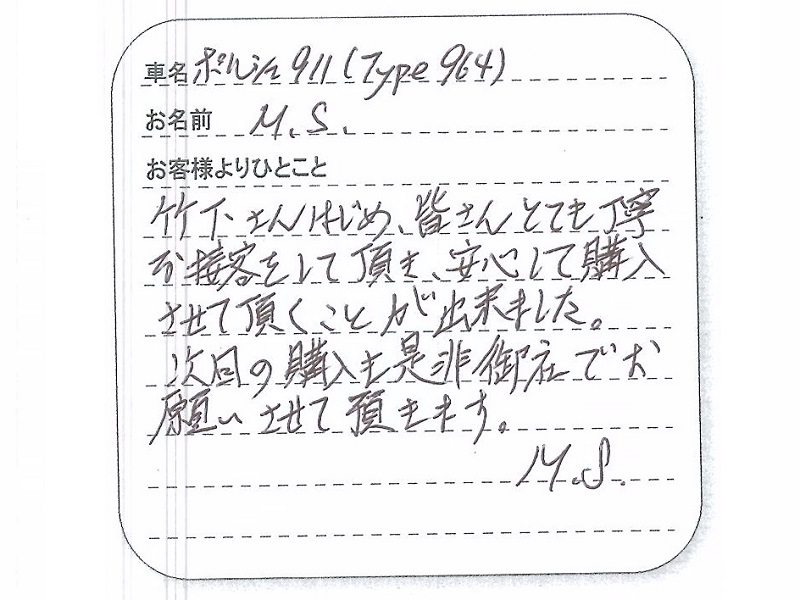 車名 ポルシェ911(Type 964)
お名前 M.S.
お客様よりひとこと
竹下さんはじめ、皆さんとても丁寧
な接客をして頂き、安心して購入
させて頂くことが出来ました。
次回の購入も是非御社でお
願いさせて頂きます。
M.S.